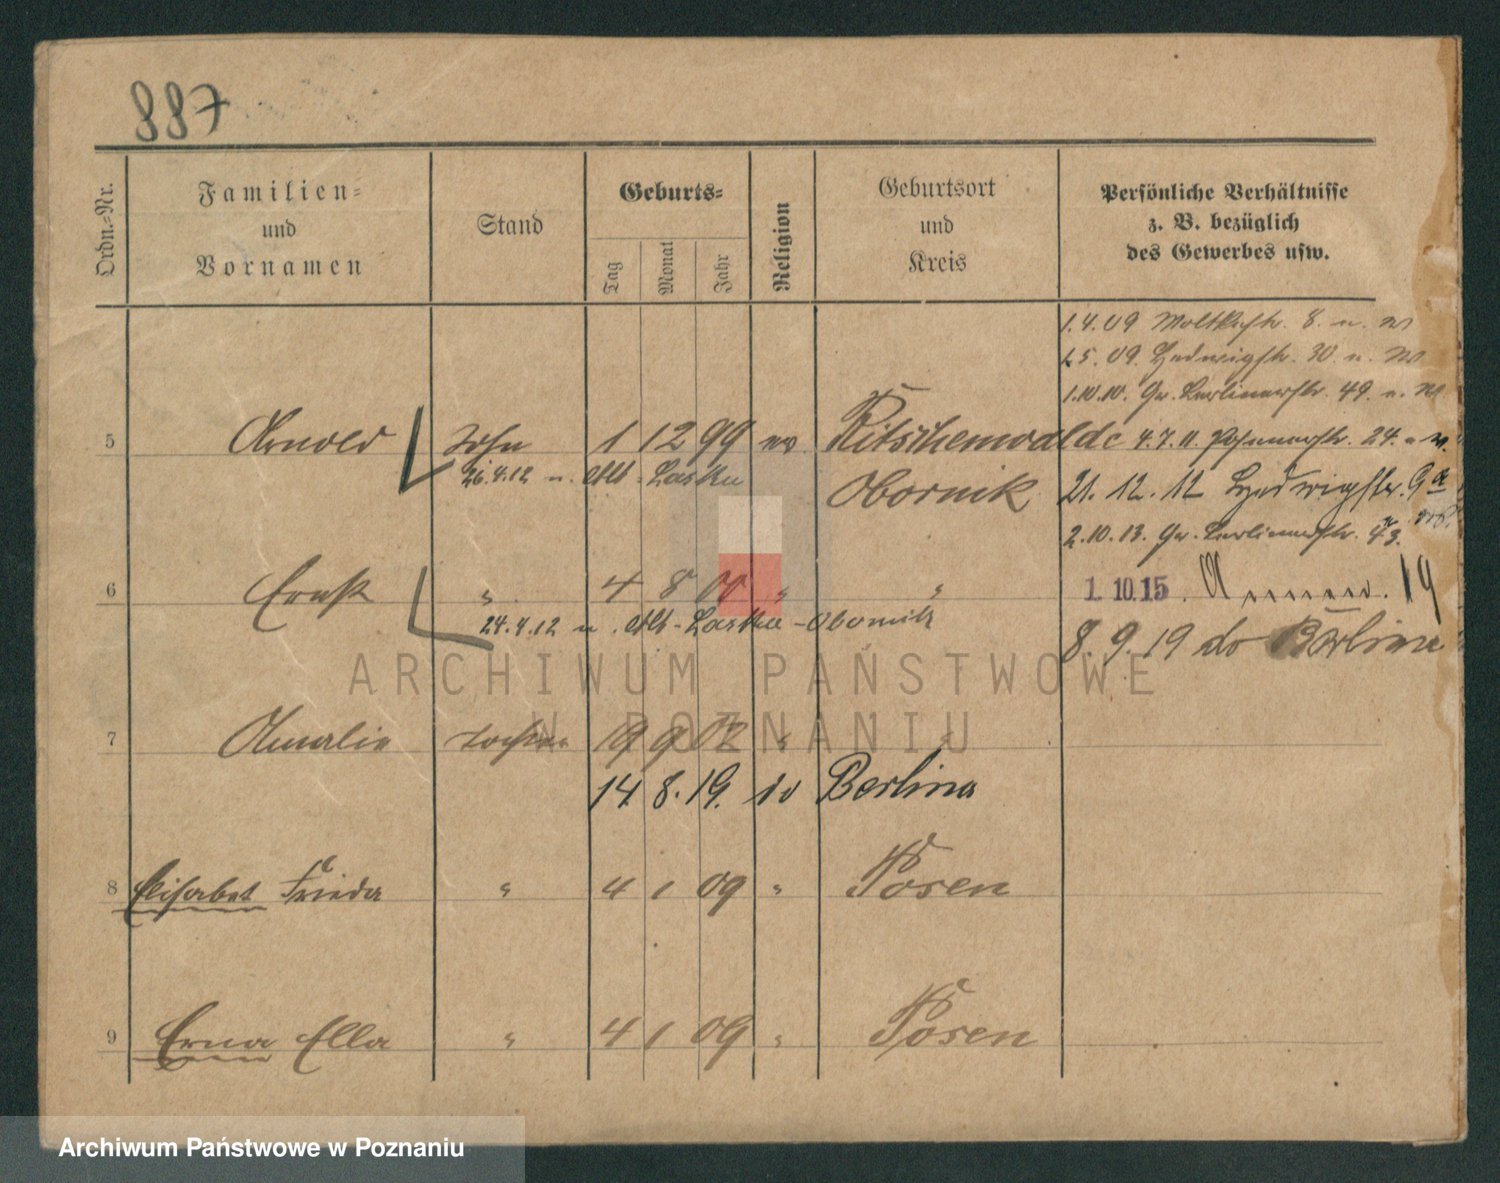 887
Ordn.-Nr.
Familien-
und
Vornamen
Stand
Geburts-
Tag
Monat
Jahr
Religion
Geburtsort
und
Kreis
Persönliche Verhältnisse
z. B. bezüglich
des Gewerbes usw.
1.4.09 Moltkestr. 8. n. W
1.5.09. Hedwigstr. 30 n. W
1.10.10. Gr. Berlinerstr. 49. n. W
5 Arnold Sohn 1 12 99 ev Ritschenwalde 4.7.11. Posenerstr. 24.
26.4.12 n. Alt-Laska
Obornik 21.12.12 Hedwigstr. 9a
2.10.13. Gr. Berlinerstr. 43.
6 Ernst " 4 8 00 " " 1.10.15. 19
24.4.12 n. Alt-Laska-Obornik
8.9.19 do Berlina
7 Amalie Tochter 19 9 02 " "
14. 8. 19. do Berlina
8 Elisabet Frieda " 4 1 09 " Posen
9 Erna Ella " 4 1 09 " Posen
ARCHIWUM PAŃSTWOWE
W POZNANIU
Archiwum Państwowe w Poznaniu